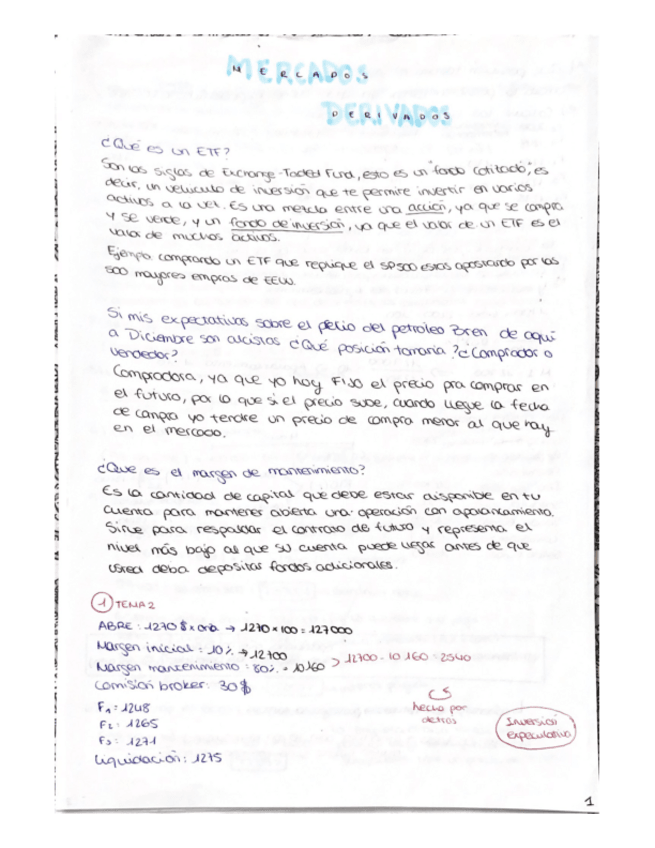 MERCADOS
DERIVADOS
¿Qué es un ETF?
Son las siglas de Exchange-Traded Fund, esto es un "fondo cotitado", es
decir, un vehiculo de inversión que te permire invertir en varios
activos a la vez. Es una mezcla entre una acción, ya que se compra
y se vende, y un fondo de inversión, ya que el valor de un ETF es el
valor de muchos activos.
Ejemplo comprando un ETF que replique el SP500 estas apostando por las
500 mayores empras de EEUU.
Si mis expectativas sobre el precio del petroleo Bren de aqui
a Diciembre son alcistas ¿Qué posición tomaria? ¿Comprador o
vendedor?
Compradora, ya que yo hoy FIJO el precio pra comprar en
el futuro, por lo que si el precio sube, cuando llegue la fecha
de compra yo tendre un precio de compra menor al que hay
en el mercado.
¿Que es el margen de mantenimiento?
Es la cantidad de capital que debe estar disponible en tu
cuenta para mantener abierta una operación con apalancamiento.
Sirve para respaldar el contrato de futuro y representa el
nivel más bajo al que su cuenta puede llegar antes de que
usted deba depositar fondos adicionales.
1 TEMA 2
ABRE: 1270 $ x onza → 1270 × 100 = 127000
Margen inicial: 10% → 12700
Margen mantenimiento: 80% = 10160 > 12700 - 10160 = 2540
Comisión broker: 30$
F1 = 1248
F2 = 1265
F3 = 1271
Liquidación: 1275
hecho por
detras
Inversion
especulativa
1